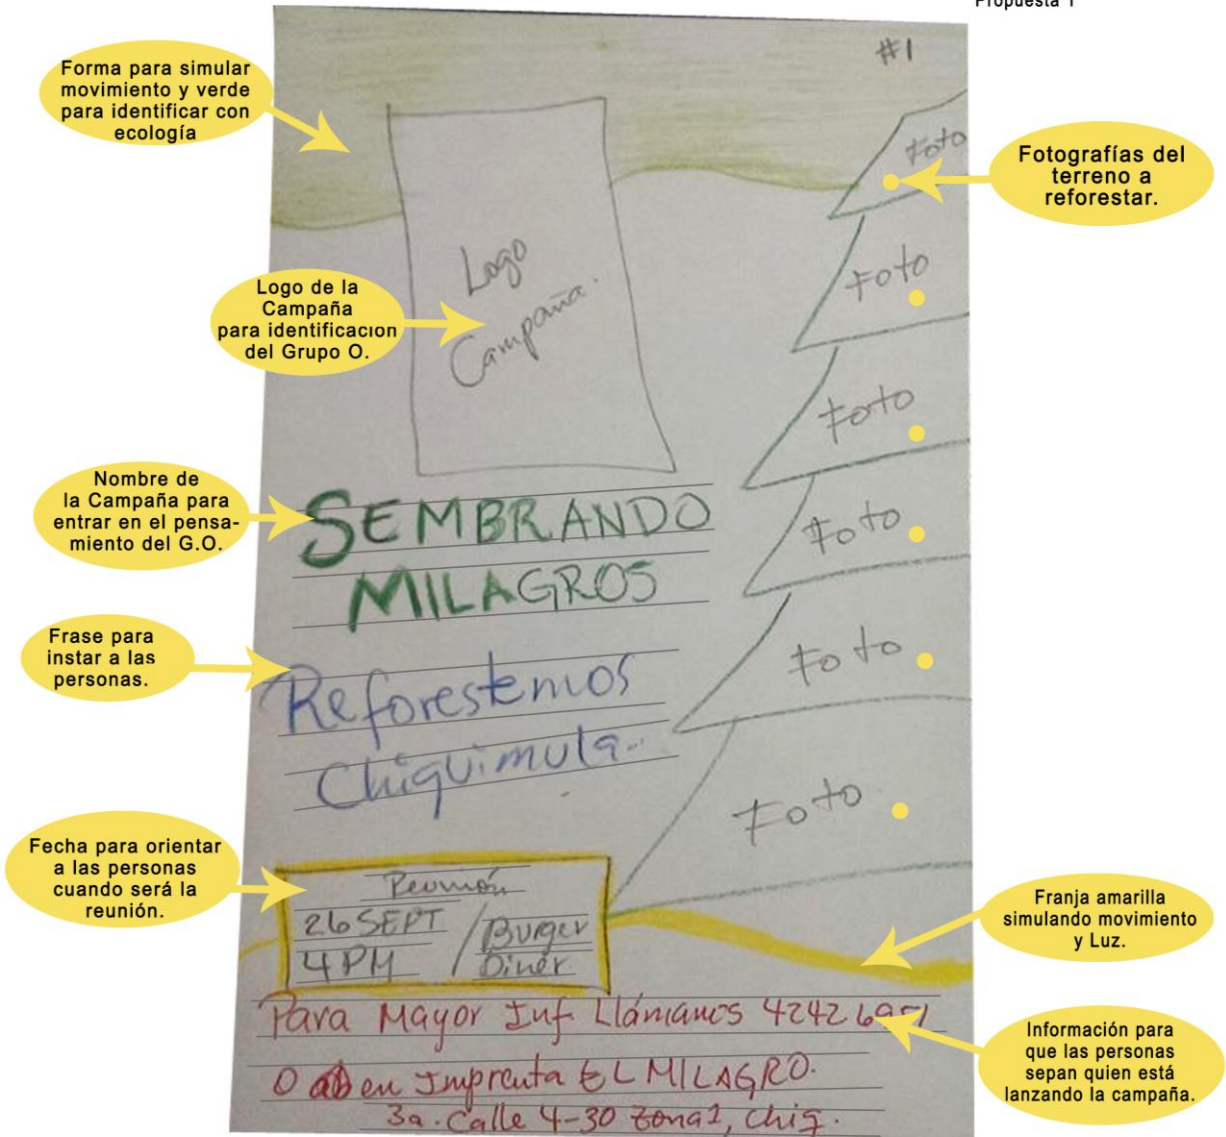 Propuesta 1
#1
Forma para simular
movimiento y verde
para identificar con
ecología
Foto
Fotografías del
terreno a
reforestar.
Logo
Campaña.
Foto
Logo de la
Campaña
para identificación
del Grupo O.
Foto
Nombre de
la Campaña para
entrar en el pensa-
miento del G.O.
SEMBRANDO
MILAGROS
Foto
Frase para
instar a las
personas.
Reforestemos
Chiquimula.
Foto
Foto
Fecha para orientar
a las personas
cuando será la
reunión.
Reunión
26 SEPT
4 PM
/ Burger
Diner.
Franja amarilla
simulando movimiento
y Luz.
Para Mayor Inf Llámanos 4242
O en Imprenta EL MILAGRO.
3a. Calle 4-30 zona1, Chiq.
Información para
que las personas
sepan quien está
lanzando la campaña.